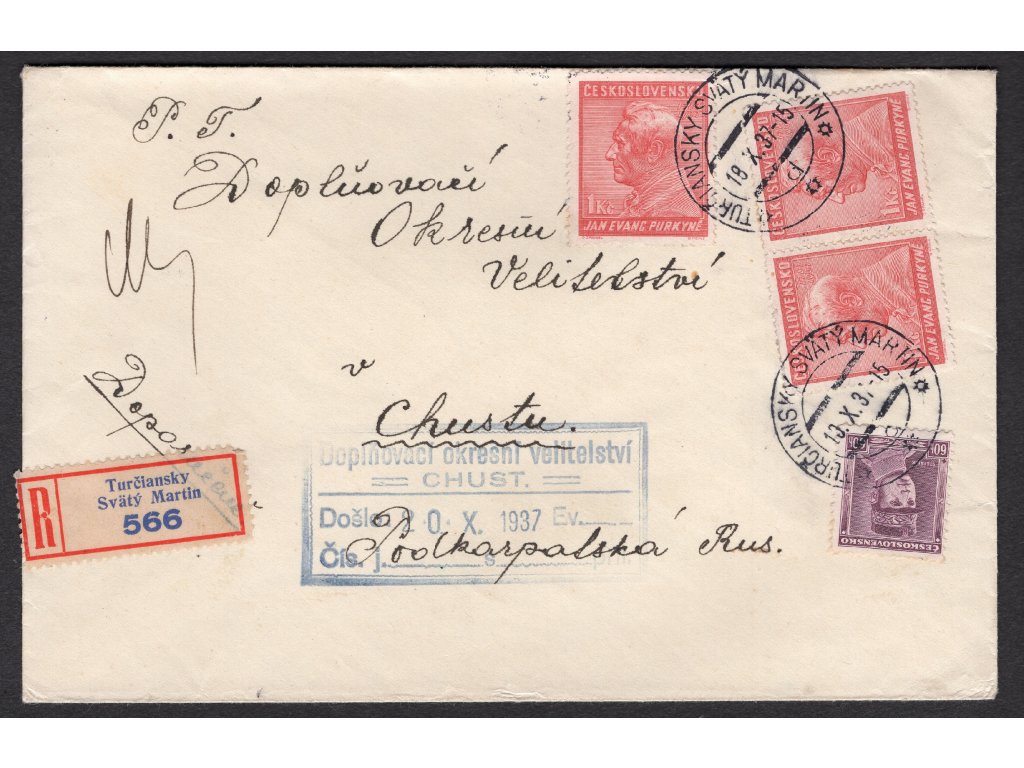 P. T.
Doplňovací
Okresní
Velitelství
v
Chustu.
Podkarpatská Rus.
Dopo
R
Turčiansky
Svätý Martin
566
Doplňovací okresní velitelství
CHUST.
Došlo 20. X. 1937 Ev.
Čís. j.
ČESKOSLOVENSKO
1 Kč
JAN EVANG. PURKYNĚ
TURČIANSKY SVÄTÝ MARTIN
18.X.37-15
ČESKOSLOVENSKO
1 Kč
JAN EVANG. PURKYNĚ
ČESKOSLOVENSKO
JAN EVANG. PURKYNĚ
TURČIANSKY SVÄTÝ MARTIN
18.X.37-15
60
ČESKOSLOVENSKO